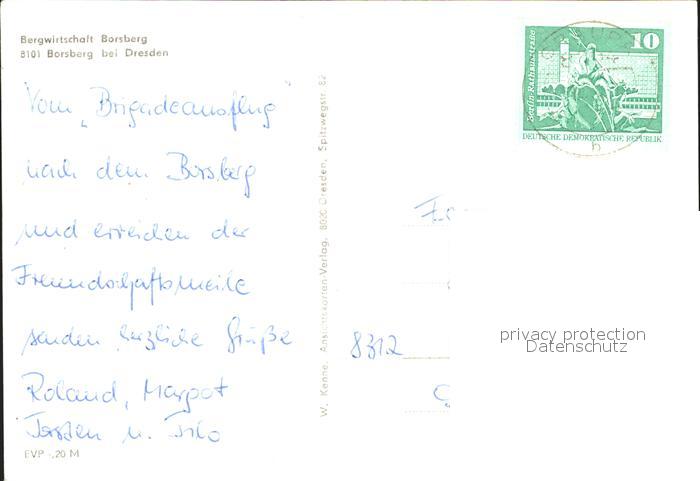 Bergwirtschaft Borsberg
8101 Borsberg bei Dresden
Vom „Brigadeausflug"
nach dem Borsberg
und erreichen der
Freundschaftsmeile
senden herzliche Grüße
Roland, Margot
Torsten u. Tilo
EVP -,20 M
W. Kenne, Ansichtskarten-Verlag, 8020 Dresden, Spitzwegstr. 82
Berlin-Rathausstraße
10
DEUTSCHE DEMOKRATISCHE REPUBLIK
b
8312
privacy protection
Datenschutz